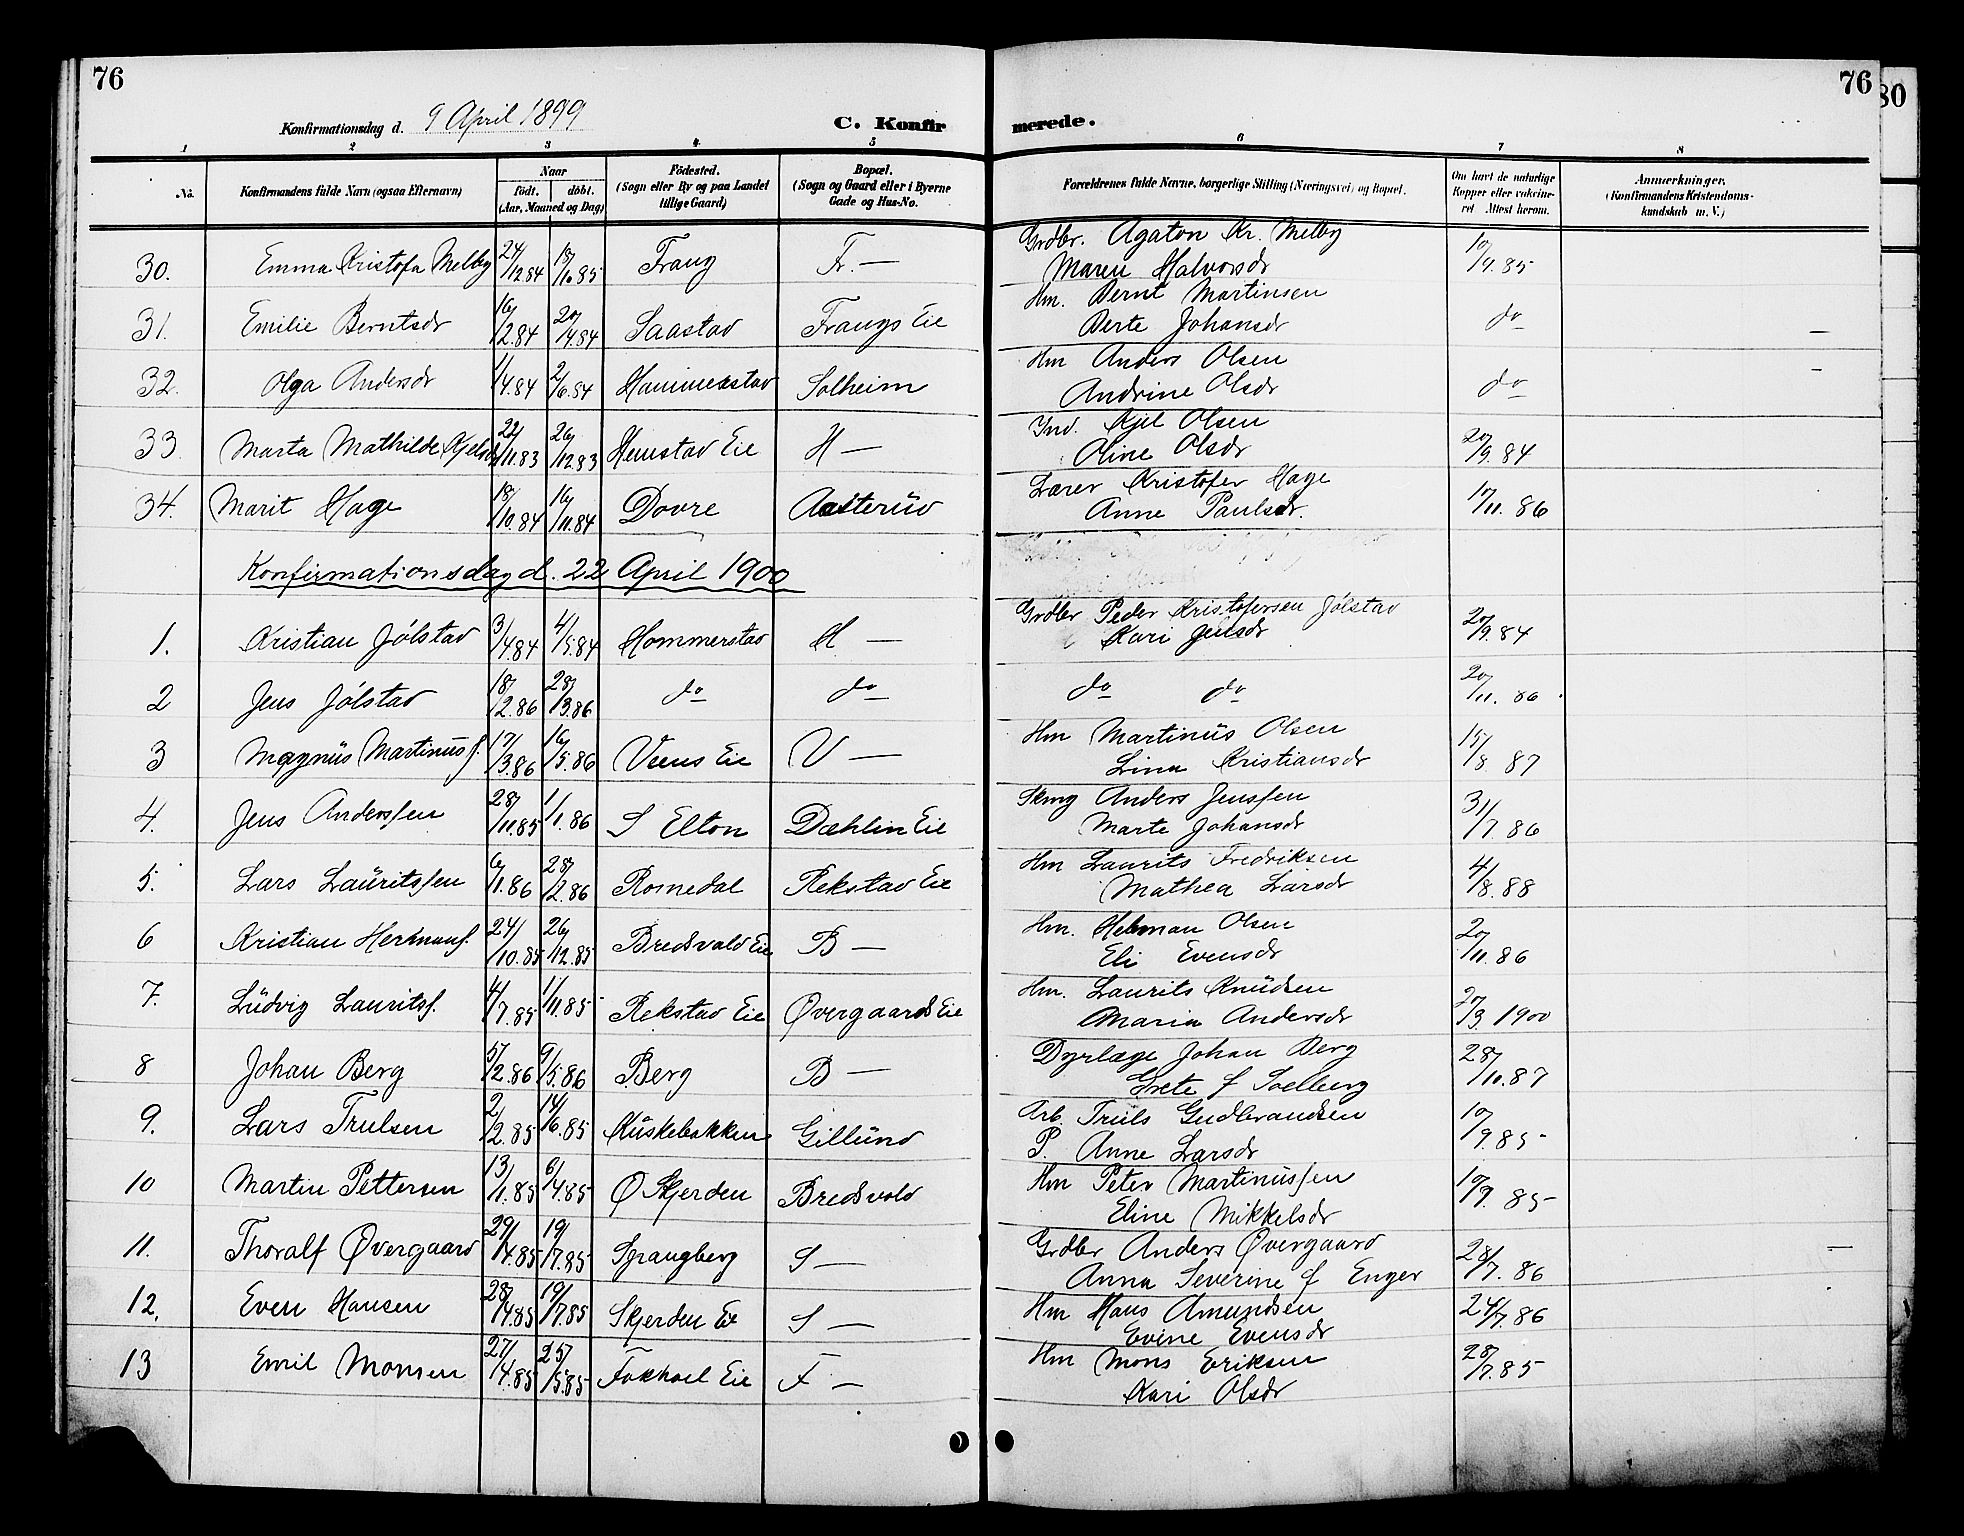 76
76
80
Konfirmationsdag d. 9 April 1899
C. Konfirmerede.
1 2 3 4 5 6 7 8
No. Konfirmandens fulde Navn (ogsaa Efternavn) Naar födt. döbt. (Aar, Maaned og Dag) Födested. (Sogn eller By og paa Landet tillige Gaard) Bopæl. (Sogn og Gaard eller i Byerne Gade og Hus-No. Forældrenes fulde Navne, borgerlige Stilling (Næringsvei) og Bopæl. Om havt de naturlige Kopper eller vakcineret Attest herom. Anmærkninger. (Konfirmandens Kristendomskundskab m. V.)
30. Emma Kristofa Melby 24/12.84 18/10.85 Frang Fr. — Grdbr. Agaton Kr. Melby 10/9.85
Maren Halvorsdr
31. Emilie Berntsdr 16/2.84 20/4.84 Saastad Frangs Eie Hm. Bernt Martinsen do
Berte Johansdr
32. Olga Andersdr 1/4.84 2/6.84 Hammerstad Solheim Hm Anders Olsen do
Andrine Olsdr
33 Marta Mathilde Kjelsdr 22/11.83 26/12.83 Hemstad Eie H — Ind. Kjel Olsen 20/9.84
Oline Olsdr
34. Marit Hage 18/10.84 16/11.84 Dovre Aasterud Lærer Kristofer Hage 17/11.86
Anne Paulsdr.
Konfirmationsdag d. 22 April 1900
1. Kristian Jølstad 3/4.84 4/5.84 Hommerstad H — Grdbr Peder Kristofersen Jølstad 20/9.84
Kari Jensdr
2 Jens Jølstad 18/2.86 28/3.86 do do do do 20/11.86
3 Magnus Martinusf. 17/3.86 16/5.86 Veens Eie V — Hm Martinus Olsen 15/8.87
Lina Kristiansdr
4. Jens Anderssen 28/11.85 1/1.86 S Elton Dæhlin Eie Skmg Anders Jenssen 31/7.86
Marte Johansdr
5. Lars Lauritssen 6/1.86 28/2.86 Romedal Rekstad Eie Hm Laurits Fredriksen 4/8.88
Mathea Larsdr
6 Kristian Hermanf. 24/10.85 26/12.85 Bredsvold Eie B — Hm. Herman Olsen 20/11.86
Eli Evensdr
7. Ludvig Lauritsf. 4/7.85 1/11.85 Rekstad Eie Øvergaards Eie Hm. Laurits Knudsen 27/3 1900
Maria Andersdr
8 Johan Berg 5/2.86 9/5.86 Berg B — Dyrlæge Johan Berg 28/10.87
Grete f Solberg
9. Lars Trulsen 2/2.85 14/6.85 Kuskebakken Gillund Arb. Truls Gudbrandsen 10/9.85
P. Anne Larsdr
10 Martin Pettersen 13/1.85 6/4.85 Ø Skjerden Bredsvold Hm Peter Martinussen 10/9.85
Eline Mikkelsdr
11. Thoralf Øvergaard 29/4.85 19/7.85 Spangberg S — Grdbr Anders Øvergaard 28/7.86
Anna Severine f Enger
12. Even Hansen 28/4.85 19/7.85 Skjerden Eie S — Hm Hans Amundsen 24/7.86
Evine Evensdr
13 Emil Monsen 27/4.85 25/5.85 Fokhoel Eie F — Hm Mons Eriksen 28/7.85
Kari Olsdr